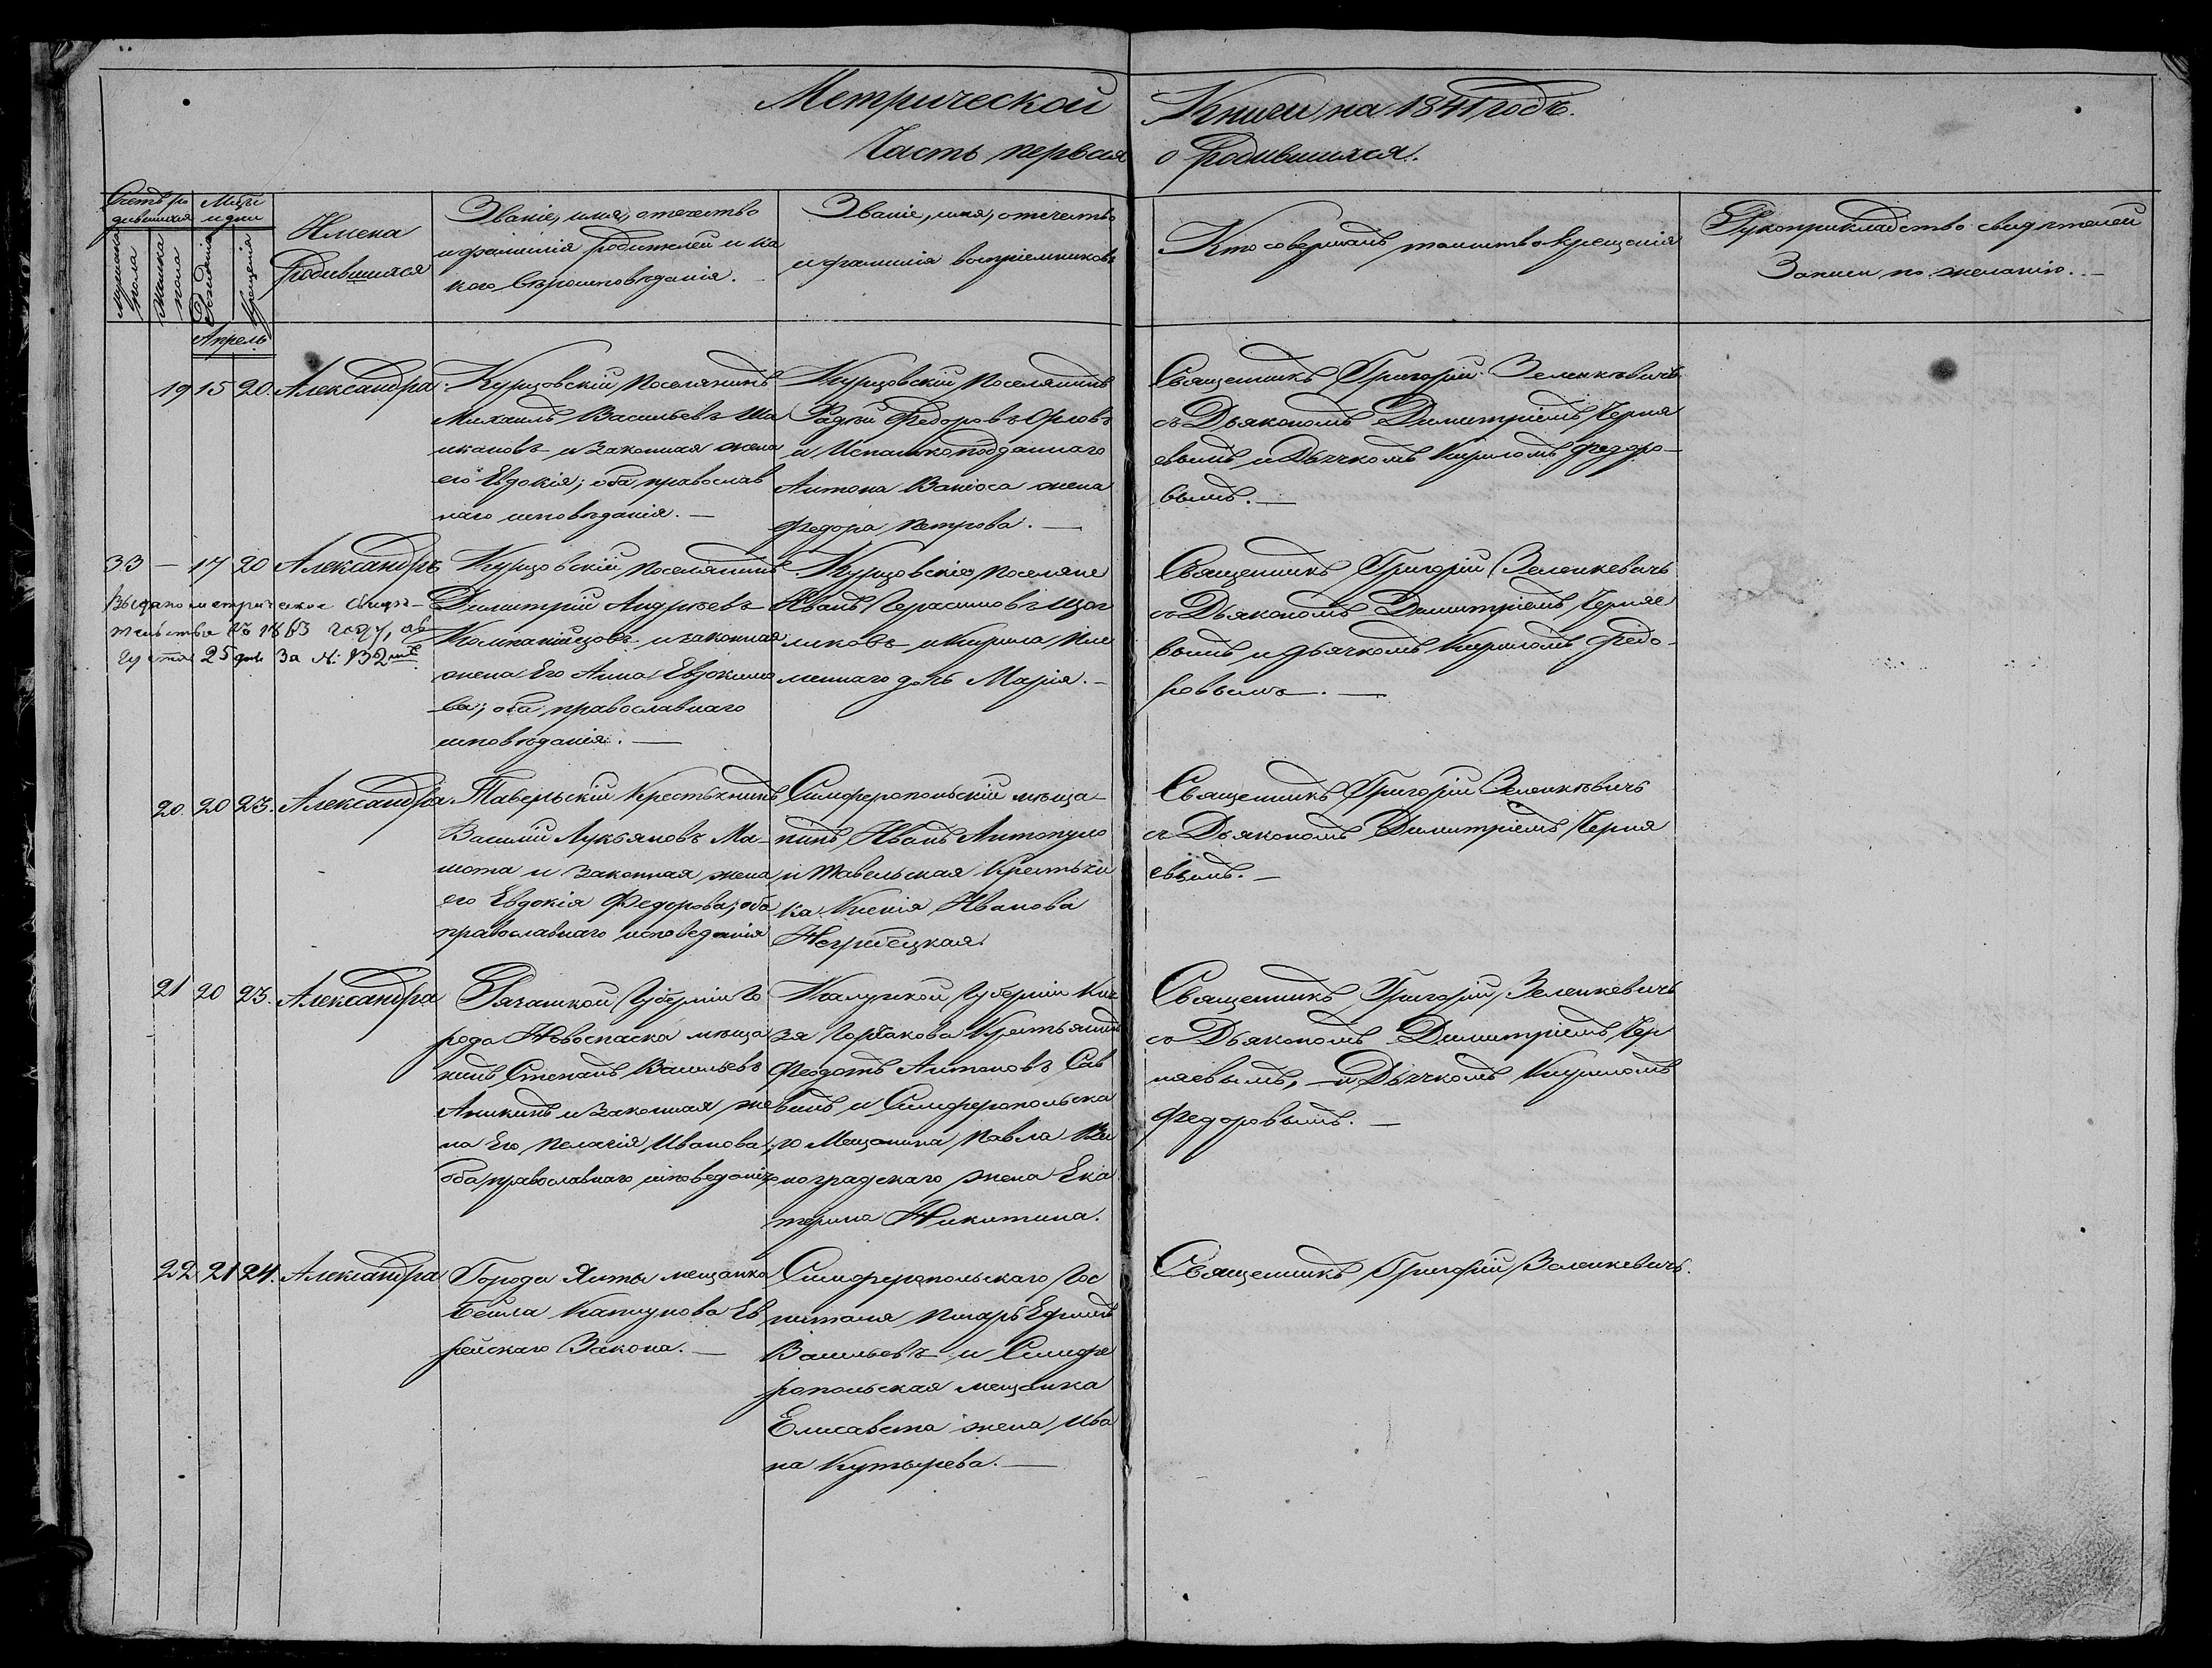 Метрической Книги на 1841 годъ.
Часть первая о родившихся.
Счетъ ро
дившихся
Мужеска
пола
Женска
пола
Мцъ
и дни
Рожденія
Крещенія
Имена
Родившихся
Званіе, имя, отечество
и фамилія родителей и ка
кого вѣроисповѣданія.
Званіе, имя, отечество
и фамилія воспріемниковъ
Кто совершалъ таинство крещенія
Рукоприкладство свидѣтелей
Записи по желанію.
Апрель
19 15 20. Александра
Курцовскій поселянинъ
Михаилъ Васильевъ
и законная жена
его Евдокія; оба православ
наго исповѣданія.
Курцовскій поселянинъ
Федоровъ Орловъ
и Испанкоподданнаго
Антона жена
Федора Петрова.
Священникъ Григорій Зеленкѣвичъ
съ Дьякономъ Димитріемъ Черня
евымъ и Дьячкомъ Кириломъ Федоро-
вымъ.
33 — 17 20 Александръ
Выдано метрическое свидѣ-
тельство въ 1863 году, ав-
густа 25 дня за №: 132
Курцовскій поселянинъ
Димитрій Андрѣевъ
и законная
жена Его Анна Евдокимо
ва; оба православнаго
исповѣданія.
Курцовскіе поселяне
Иванъ Герасимовъ
и Кирила
дочь Марія.
Священникъ Григорій Зеленкевичъ
съ Дьякономъ Димитріемъ Черняе
вымъ и дьячкомъ Кириломъ Федо-
ровымъ.
20. 20 23. Александра
Тавельскій Крестьянинъ
Василій Лукьяновъ Ма-
и законная жена
его Евдокія Федорова; оба
православнаго исповеданія
Симферопольскій мѣща-
нинъ Иванъ Антопуло
и Тавельская Крестьян
ка Ксенія Иванова
Негрибецкая.
Священникъ Григорій Зеленкѣвичъ
съ Дьякономъ Димитріемъ Черня
евымъ.
21 20 23. Александра
Губерніи Го
рода Новоспаска мѣща
нинъ Степанъ Васильевъ
Аникинъ и законная же
на Его Пелагія Иванова;
оба православнаго исповеданія
Калужской Губерніи Кня
зя Горчакова Крестьянинъ
Феодотъ Антоновъ Сав
винъ и Симферопольска
го Мещанина Павла Ви
ноградскаго жена Ека
терина Никитина.
Священникъ Григорій Зеленкевичъ
со Дьякономъ Димитріемъ Чер
няевымъ, и Дьячкомъ Кириломъ
Федоровымъ.
22 21 24. Александра
Города Ялты мещанка
Бейла Капшукова Ев
рейскаго Закона.
Симферопольскаго Гос
питаля Писарь Ефимъ
Васильевъ и Симфе
ропольская мещанка
Елисавета жена Ива
на Кутырева.
Священникъ Григорій Зеленкевичъ.